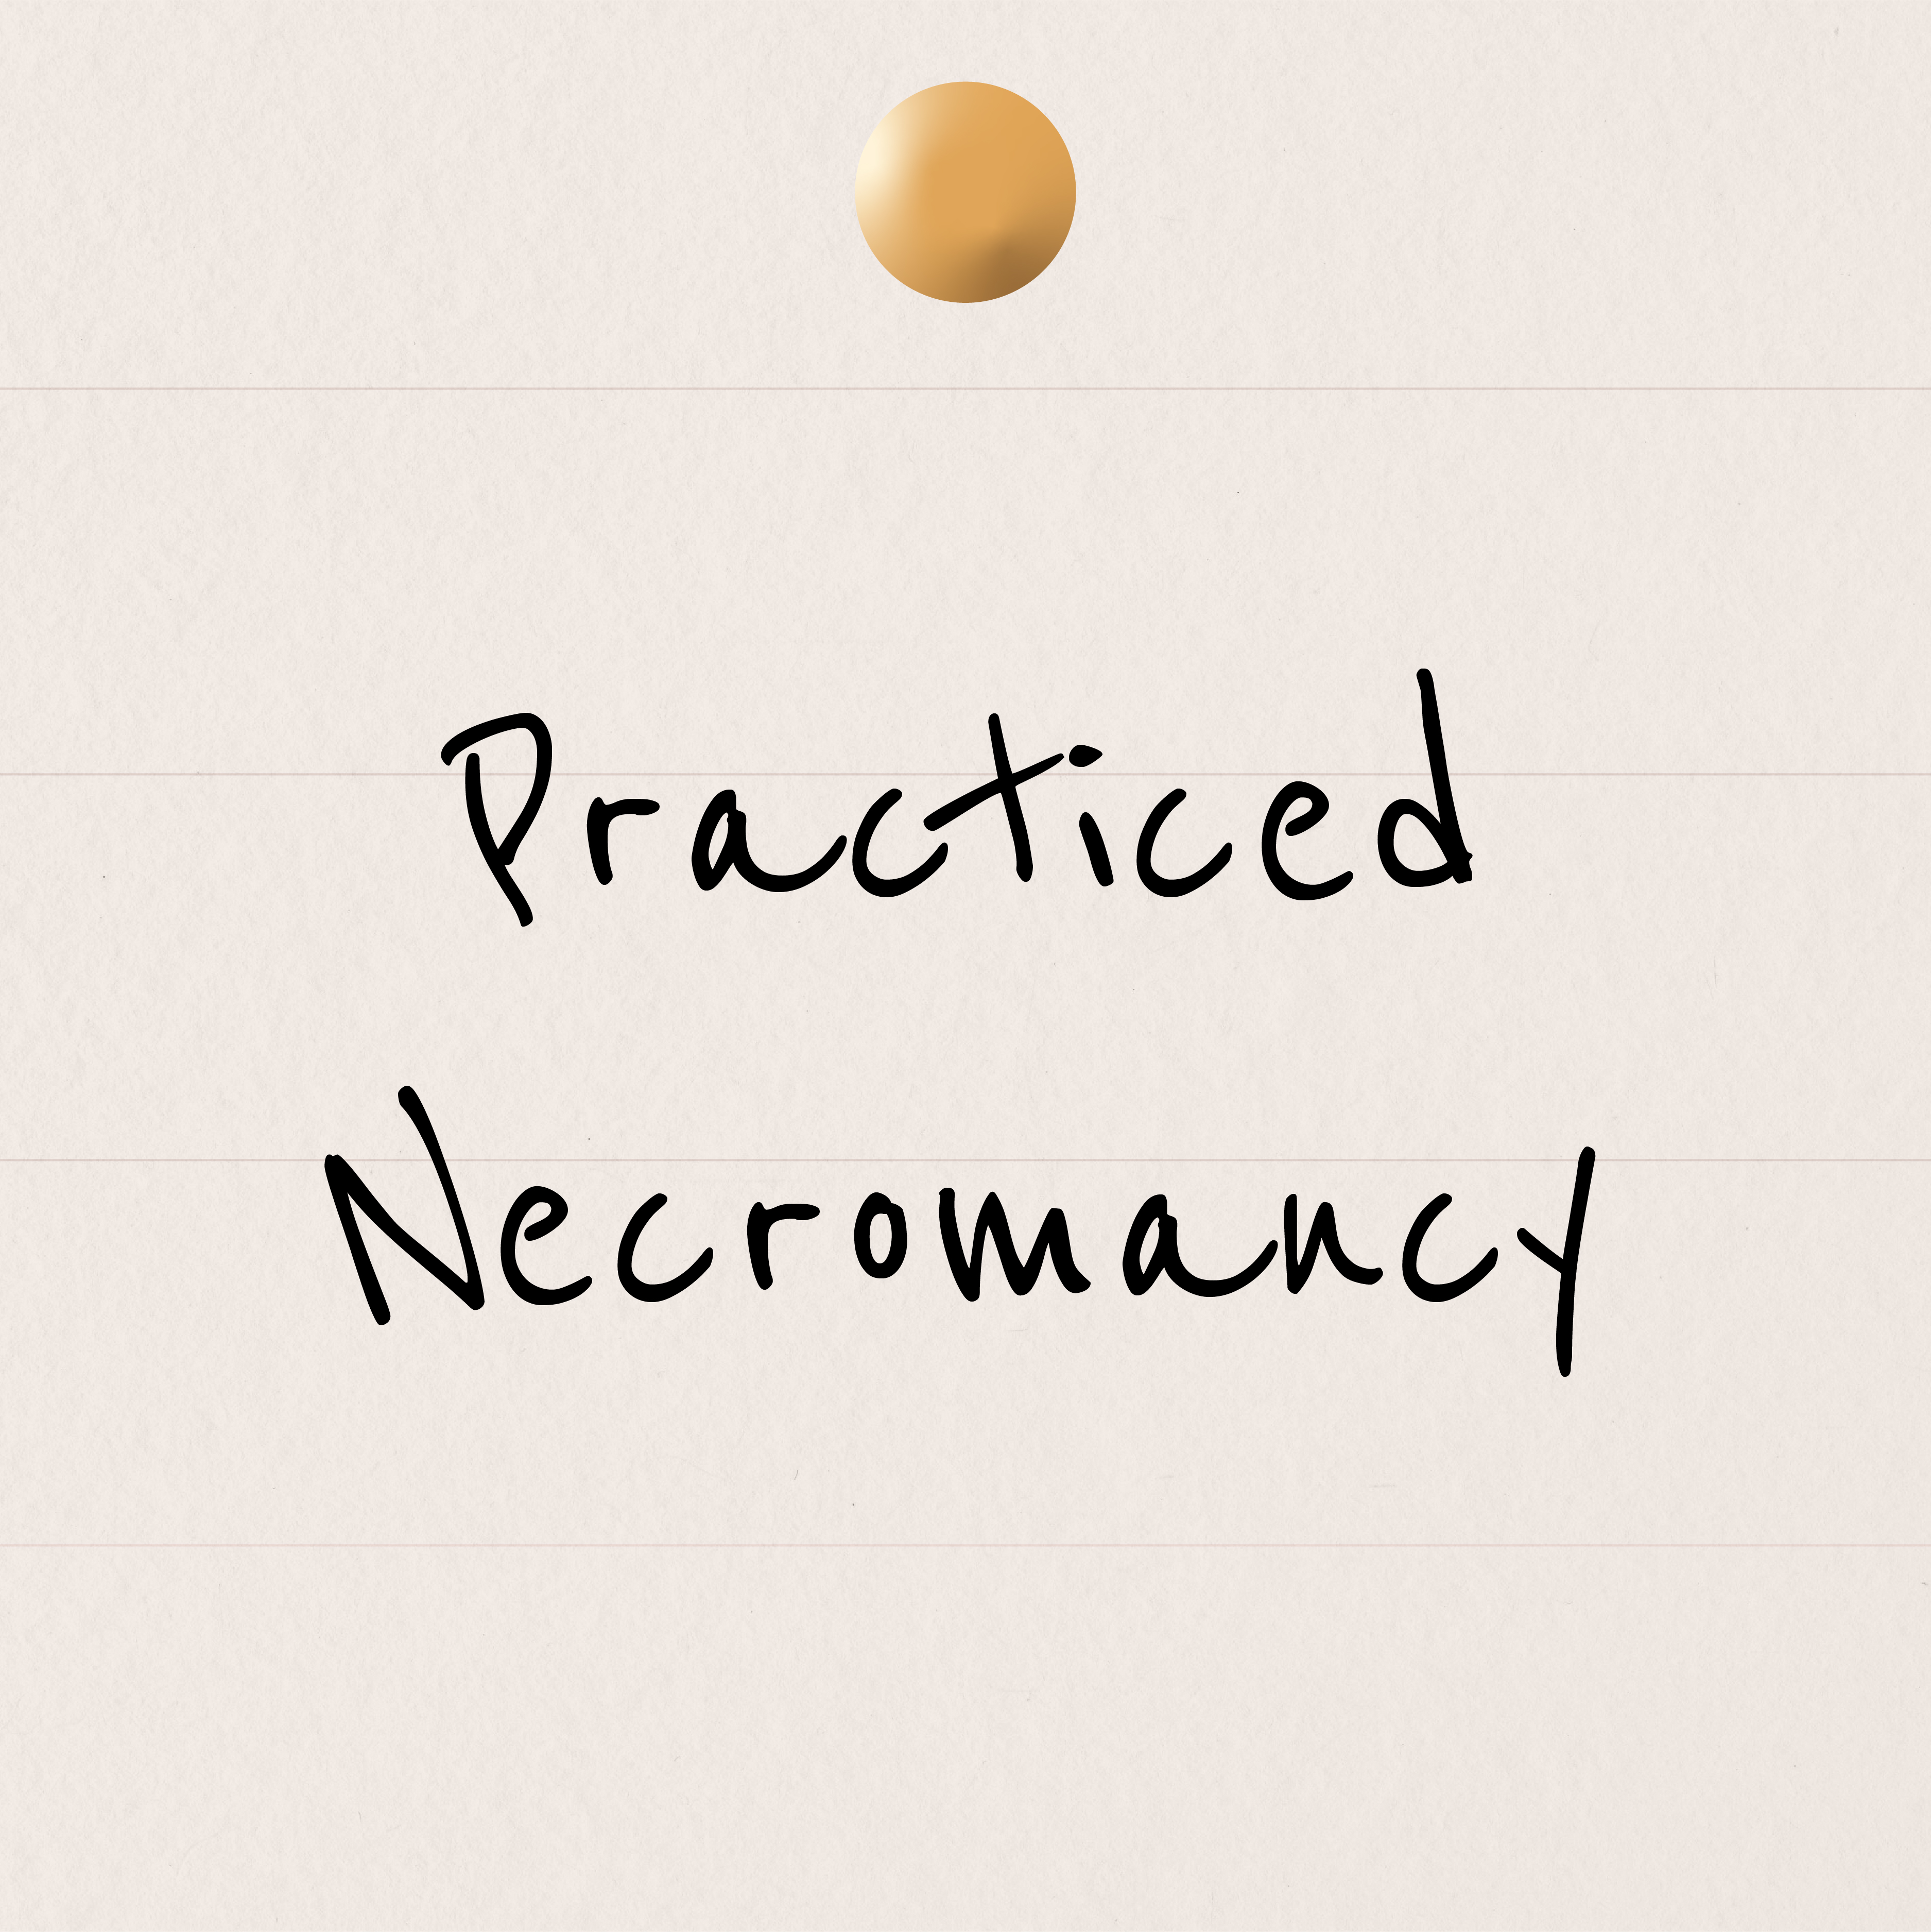 Practiced
Necromancy